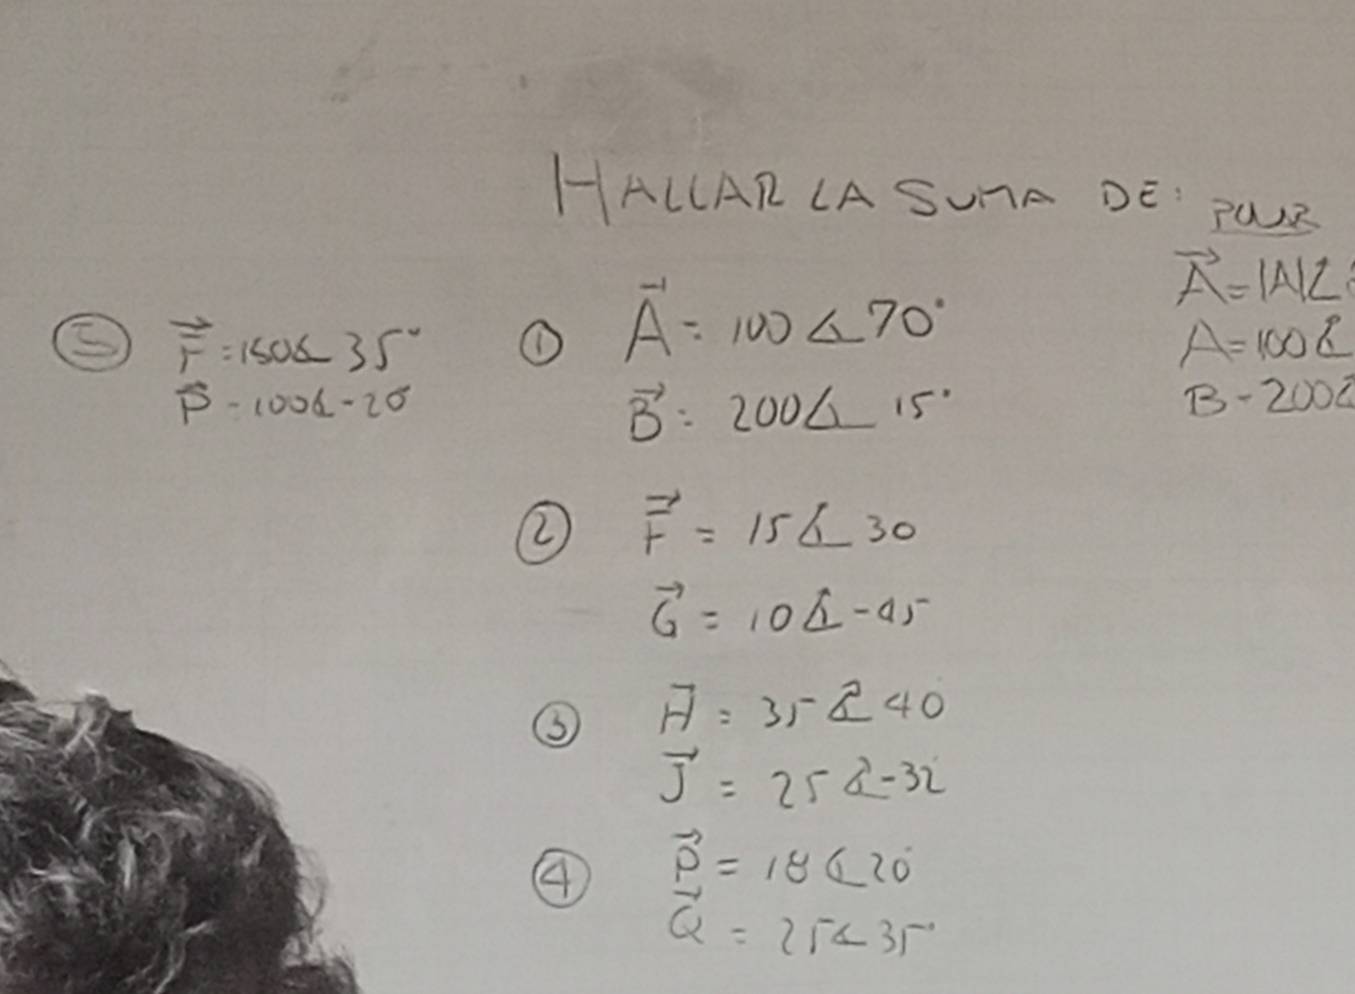 HALLAR LA SUMA DE: POLAR
① A = 100∠70°
B = 200∠15°
② F = 15∠30
G = 10∠-45
③ H = 35∠40
J = 25∠-32
④ P = 18∠20
Q = 25∠35°
⑤ F = 150∠35°
P = 100∠-20
A = |A|∠
A = 100∠
B = 200∠